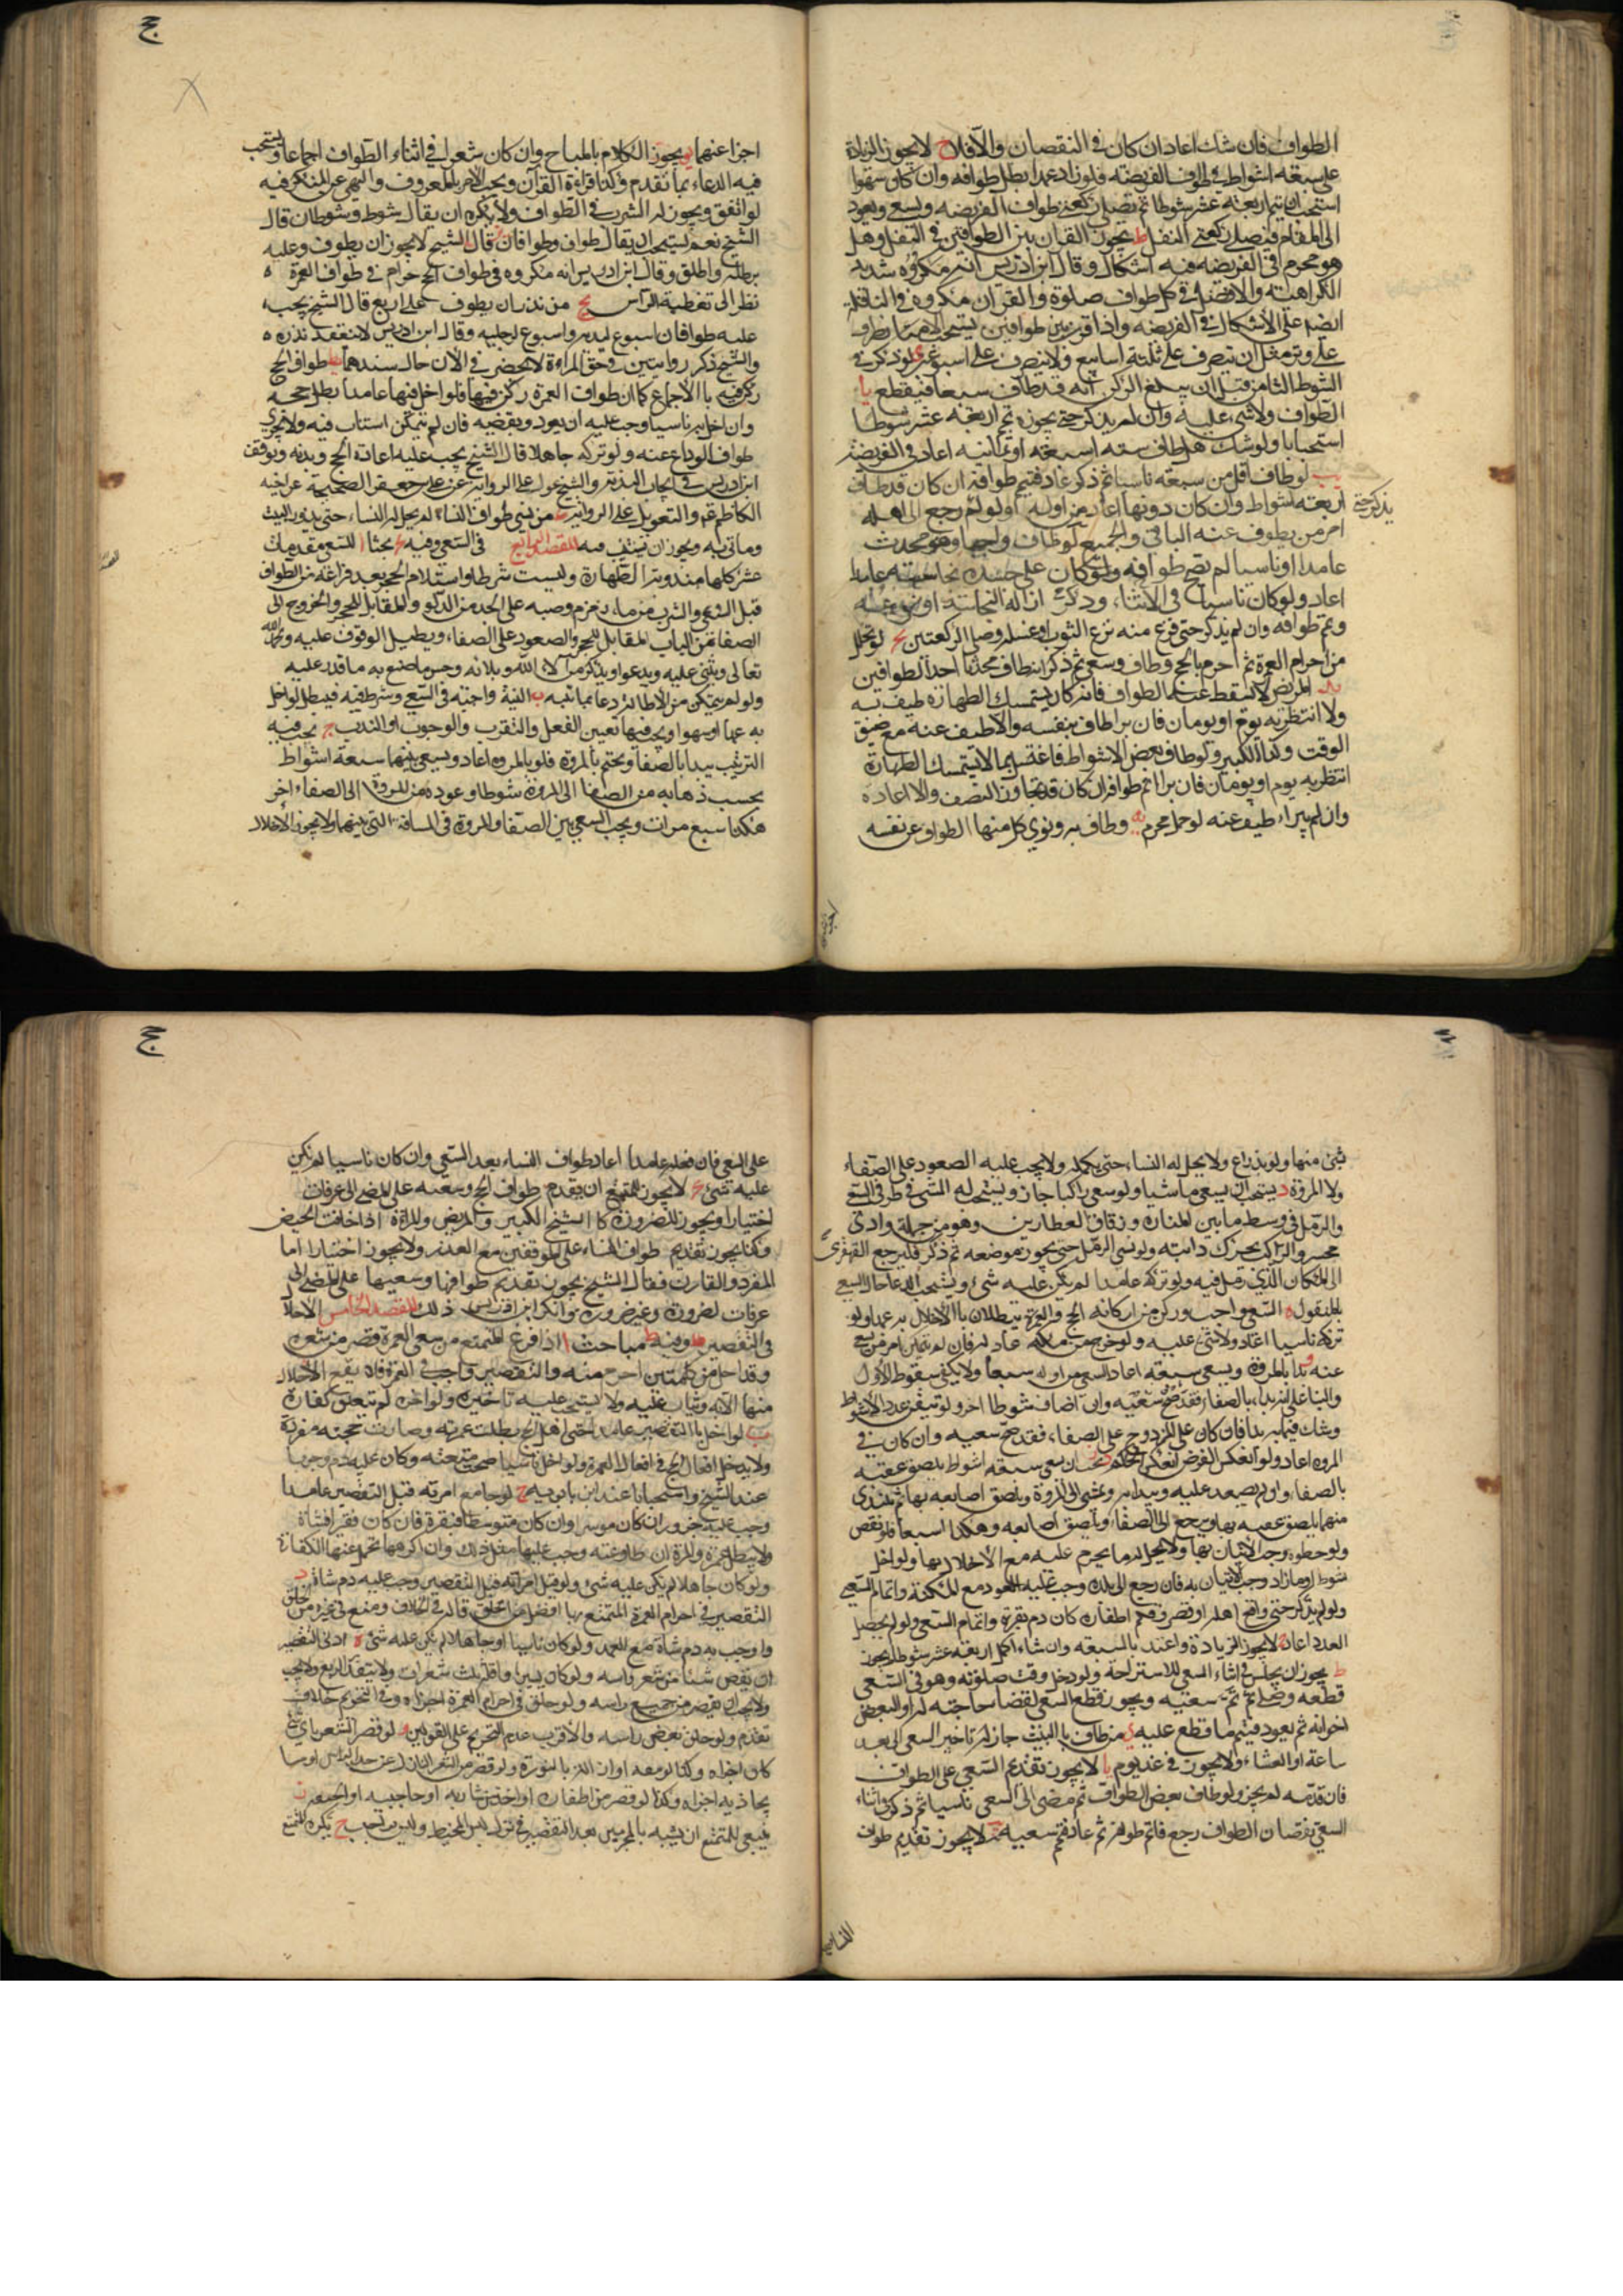 الطواف فان شك اعاد ان كان في النقصان والا فلا ح لا يجوز الزيادة
على سبعة اشواط في طواف الفريضة فلو زاد عمدا بطل طوافه وان كان سهوا
استحب ان يتم اربعة عشر شوطا ثم يصلي ركعتي طواف الفريضه ويسعى ويعود
الى المقام فيصلي ركعتي النفل ط يجوز القران بين الطوافين في النفل وهل
هو محرم في الفريضه فيه اشكال وقال ابن ادريس انه مكروه شديد
الكراهته والافضل في كل طواف صلوة والقران مكروه في النافلة
ايضا على الاشكال في الفريضه واذا قرن بين طوافين يستحب الانصراف
على وتر مثل ان ينصرف على ثلثة اسابيع ولا ينصرف على اسبوعين ى لو ذكر في
الشوط الثامن قبل ان يبلغ الركن انه قد طاف سبعا فليقطع يا
الطواف ولا شيء عليه وان لم يذكر حتى يجوزه تم اربعة عشر شوطا
استحبابا ولو شك هل طاف ستة او سبعة او ثمانية اعاد في الفريضة
يب لو طاف اقل من سبعة ناسيا ثم ذكر عاد فتمم طوافه ان كان قد طاف
اربعة اشواط وان كان دونها اعاد من اوله ولو لم يذكر حتى رجع الى اهله
امر من يطوف عنه الباقي او الجميع لو طاف واجبا وهو محدث
عامدا او ناسيا لم يصح طوافه ولو كان على جسده نجاسة عامدا
اعاد ولو كان ناسيا وذكر في الاثناء ازاله النجاسة
وتم طوافه وان لم يذكر حتى فرغ منه نزع الثوب او غسله وصلى الركعتين لو تحلل
من احرام العمرة ثم احرم بالحج وطاف وسعى ثم ذكر انه طاف محدثا احد الطوافين
يد المريض لا يسقط عنه الطواف فان كان يستمسك الطهارة طيف به
ولا انتظر به يوم او يومان فان برا طاف بنفسه والا طيف عنه مع ضيق
الوقت وكذا الكسير ولو طاف بعض الاشواط فاعتل بما لا يستمسك الطهارة
انتظر به يوم او يومان فان برا اتم طوافه ان كان قد تجاوز النصف والا اعاده
وان لم يبراء طيف عنه لو حمل محرم يه وطاف به ونوى كل منهما الطواف عن نفسه
ج
اجزا عنهما يو يجوز الكلام بالمباح وان كان شعرا في اثناء الطواف اجماعا ويستحب
فيه الدعاء بما تقدم وكذا قراءة القرآن ويجب الامر بالمعروف والنهي عن المنكر فيه
لو اتفق ويجوز له الشرب في الطواف ولا يكره ان يقال شوط وشوطان قال
الشيخ نعم يستحب ان يقال طواف وطوافان يز قال الشيخ لا يجوز ان يطوف وعليه
برطلة واطلق وقال ابن ادريس انه مكروه في طواف الحج حرام في طواف العمرة
نظرا الى تغطية الرأس يح من نذر ان يطوف على اربع قال الشيخ يجب
عليه طوافان اسبوع ليديه واسبوع لرجليه وقال ابن ادريس لا ينعقد نذره
والشيخ ذكر روايتين في حق المراءة لا يحضرني الان حال سندهما يط طواف الحج
ركن فيه بالاجماع كما ان طواف العمرة ركن فيها فلو اخل فيها عامدا بطل حجه
وان اخل به ناسيا وجب عليه ان يعود ويقضيه فان لم يتمكن استناب فيه ولا يجزي
طواف الوداع عنه ولو تركه جاهلا قال الشيخ يجب عليه اعادة الحج وبدنه وتوقف
ابن ادريس في ايجاب البدنه والشيخ عول على الرواية عن علي بن جعفر الصحيحة عن اخيه
الكاظم ع والتعويل على الرواية من نسي طواف النساء لم يحل له النساء حتى يزور البيت
وياتي به ويجوز ان يستنيب فيه المقصد الرابع في السعي وفيه بحثا ا للسعي مقدمات
عشر كلها مندوبة الطهارة وليست شرطا واستلام الحجر بعد فراغه من الطواف
قبل السعي والشرب من ماء زمزم وصبه على الجسد من الدلو والمقابل للحجر والخروج الى
الصفا من الباب المقابل للحجر والصعود على الصفاء ويطيل الوقوف عليه ويحمد الله
تعالى ويثني عليه ويدعو ويذكر من آلاء الله وبلائه وحسن ما صنع به ما قدر عليه
ولو لم يتمكن من الاطالة دعا بما تيسر ب النية واجبة في السعي وشرط فيه فيبطل لو اخل
به عمدا او سهوا ويجب فيها تعيين الفعل والتقرب والوجوب او الندب ج يجب فيه
الترتيب يبدا بالصفا ويختم بالمروة فلو بدأ بالمروة اعاد ويسعى بينهما سبعة اشواط
يحسب ذهابه من الصفا الى المروة شوطا وعوده من المروة الى الصفاء اخر
هكذا سبع مرات ويجب السعي بين الصفا والمروة في المسافة التي بينهما ولا يجوز الاخلال
ج
شيء منها ولو بذراع ولا يحل له النساء حتى يكمله ولا يجب عليه الصعود على الصفاء
ولا المروة د يستحب ان يسعى ماشيا ولو سعى راكبا جاز ويستحب له المشي في طرفي السعي
والرمل في وسطه ما بين المنارة وزقاق العطارين وهو من جملة وادي
محسر والراكب يحرك دابته ولو نسي الرمل حتى يجوز موضعه ثم ذكر فليرجع القهقرى
الى المكان الذي رمل فيه ولو تركه عامدا لم يكن عليه شيء ويستحب الدعاء حال السعي
بالمنقول ه السعي واجب وركن من اركان الحج والعمرة يبطلان بالاخلال به عمدا ولو
تركه ناسيا اعاد ولا شيء عليه ولو خرج من مكة عاد له فان لم يتمكن امر من يسعى
عنه و لو بدا بالمروة وسعى سبعة اعاد السعي من اوله سبعا ولا يكفي سقوط الاول
والبناء على انه بدا بالصفا فقد صح سعيه وان اضاف شوطا اخر ولو تيقن عدد الاشواط
وشك فيما به بدا فان كان على المزدوج على الصفاء فقد صح سعيه وان كان في
المروه اعاد ولو انعكس الفرض انعكس الحكم ز يجب ان يسعى سبعة اشواط يلصق عقبه
بالصفاء ولو لم يصعد عليه ويبدا به ويمشي الى المروة ويلصق اصابعه بها ثم يبتدي
منها يلصق عقبيه بها ويرجع الى الصفاء ويلصق اصابعه وهكذا اسبعا فلو نقص
ولو خطوة وجب الاتيان بها ولا يحل له ما يحرم عليه مع الاخلال بها ولو اخل
شوط او ما زاد وجب الاتيان به فان رجع الى بلده وجب عليه العود مع المكنة واتمام السعي
ولو لم يذكر حتى واقع اهله او قصر وقلم اظفاره كان دم بقرة واتمام السعي ولو لم يحصل
العدد اعاد ح لا يجوز الزيادة واعتد بالسبعة وان شاء اكمل اربعة عشر شوطا ويجوز
ط يجوز ان يجلس في اثناء السعي للاستراحة ولو دخل وقت صلوته وهو في السعي
قطعه وصلى ثم تمم سعيه ويجوز قطع السعي لقضاء حاجته له او لبعض
اخوانه ثم يعود فيتم ما قطع عليه ى من طاف بالبيت جاز له تاخير السعي الى بعد
ساعة او العشاء ولا يجوز في غد يوم يا لا يجوز تقديم السعي على الطواف
فان قدمه لم يجز ولو طاف بعض الطواف ثم مضى الى السعي ناسيا ثم ذكر في اثناء
السعي نقصان الطواف رجع فاتم طوافه ثم عاد فتمم سعيه لا يجوز تقديم طواف
على السعي فان فعله عامدا اعاد طواف النساء بعد السعي وان كان ناسيا لم يكن
عليه شيء لا يجوز للمتمتع ان يقدم طواف الحج وسعيه على المضي الى عرفات
اختيارا ويجوز للضرورة كالشيخ الكبير والمريض والمراة اذا خافت الحيض
وكذا يجوز تقديم طواف النساء على الموقفين مع العذر ولا يجوز اختيارا اما
المفرد والقارن فقال الشيخ يجوز تقديم طوافهما وسعيهما على المضي الى
عرفات لضرورة وغير ضرورة وانكر ابن ادريس ذلك المقصد الخامس الاحلال
في التقصير وفيه مباحث ا اذا فرغ المتمتع من سعي العمرة قصر من شعره
وقد احل من كل شيء احرم منه والتقصير واجب في العمرة فلا يقع الاحلال
منها الا به ويثاب عليه ولا يستحب عليه تاخيره ولو اخره لم يتعلق كفارة
ب لو اخل بالتقصير عامدا حتى اهل بالحج بطلت عمرته وصارت حجته مفردة
ولا يدخل افعال الحج في افعال العمرة ولو اخل ناسيا صحت متعته وكان عليه دم وجوبا
عند الشيخ واستحبابا عند ابن بابويه ج لو جامع امرته قبل التقصير عامدا
وجب عليه جزور ان كان موسرا وان كان متوسطا فبقرة فان كان فقيرا فشاة
ولا يبطل عمرته والمراة ان طاوعته وجب عليها مثل ذلك وان اكرهها تحمل عنها الكفارة
ولو كان جاهلا لم يكن عليه شيء ولو قبل امراته قبل التقصير وجب عليه دم شاة د
التقصير في احرام العمرة المتمتع بها افضل من الحلق قاله في الخلاف ومنع في غيره من الحلق
واوجب به دم شاة مع العمد ولو كان ناسيا او جاهلا لم يكن عليه شيء ه ادنى التقصير
ان يقص شيئا من شعر راسه ولو كان يسيرا واقله ثلث شعرات ولا يتقدر الربع ولا يجب
ولا يجب ان يقصر من جميع راسه ولو حلق في احرام العمرة اجزاه وفي التحريم خلاف
تقدم ولو حلق بعض راسه والاقرب عدم التحريم على القولين و لو قصر الشعر باي شيء
كان اجزاه وكذا لو نتفه او ازاله بالنورة ولو قصر من الشعر النازل عن حد الراس او ما
يحاذيه اجزاه وكذا لو قصر من اظفاره او اخذ من شاربه او حاجبيه او لحيته ز
ينبغي للمتمتع ان يشبه بالمحرمين بعد التقصير في ترك لبس المخيط وليس بواجب ح يكره للمتمتع